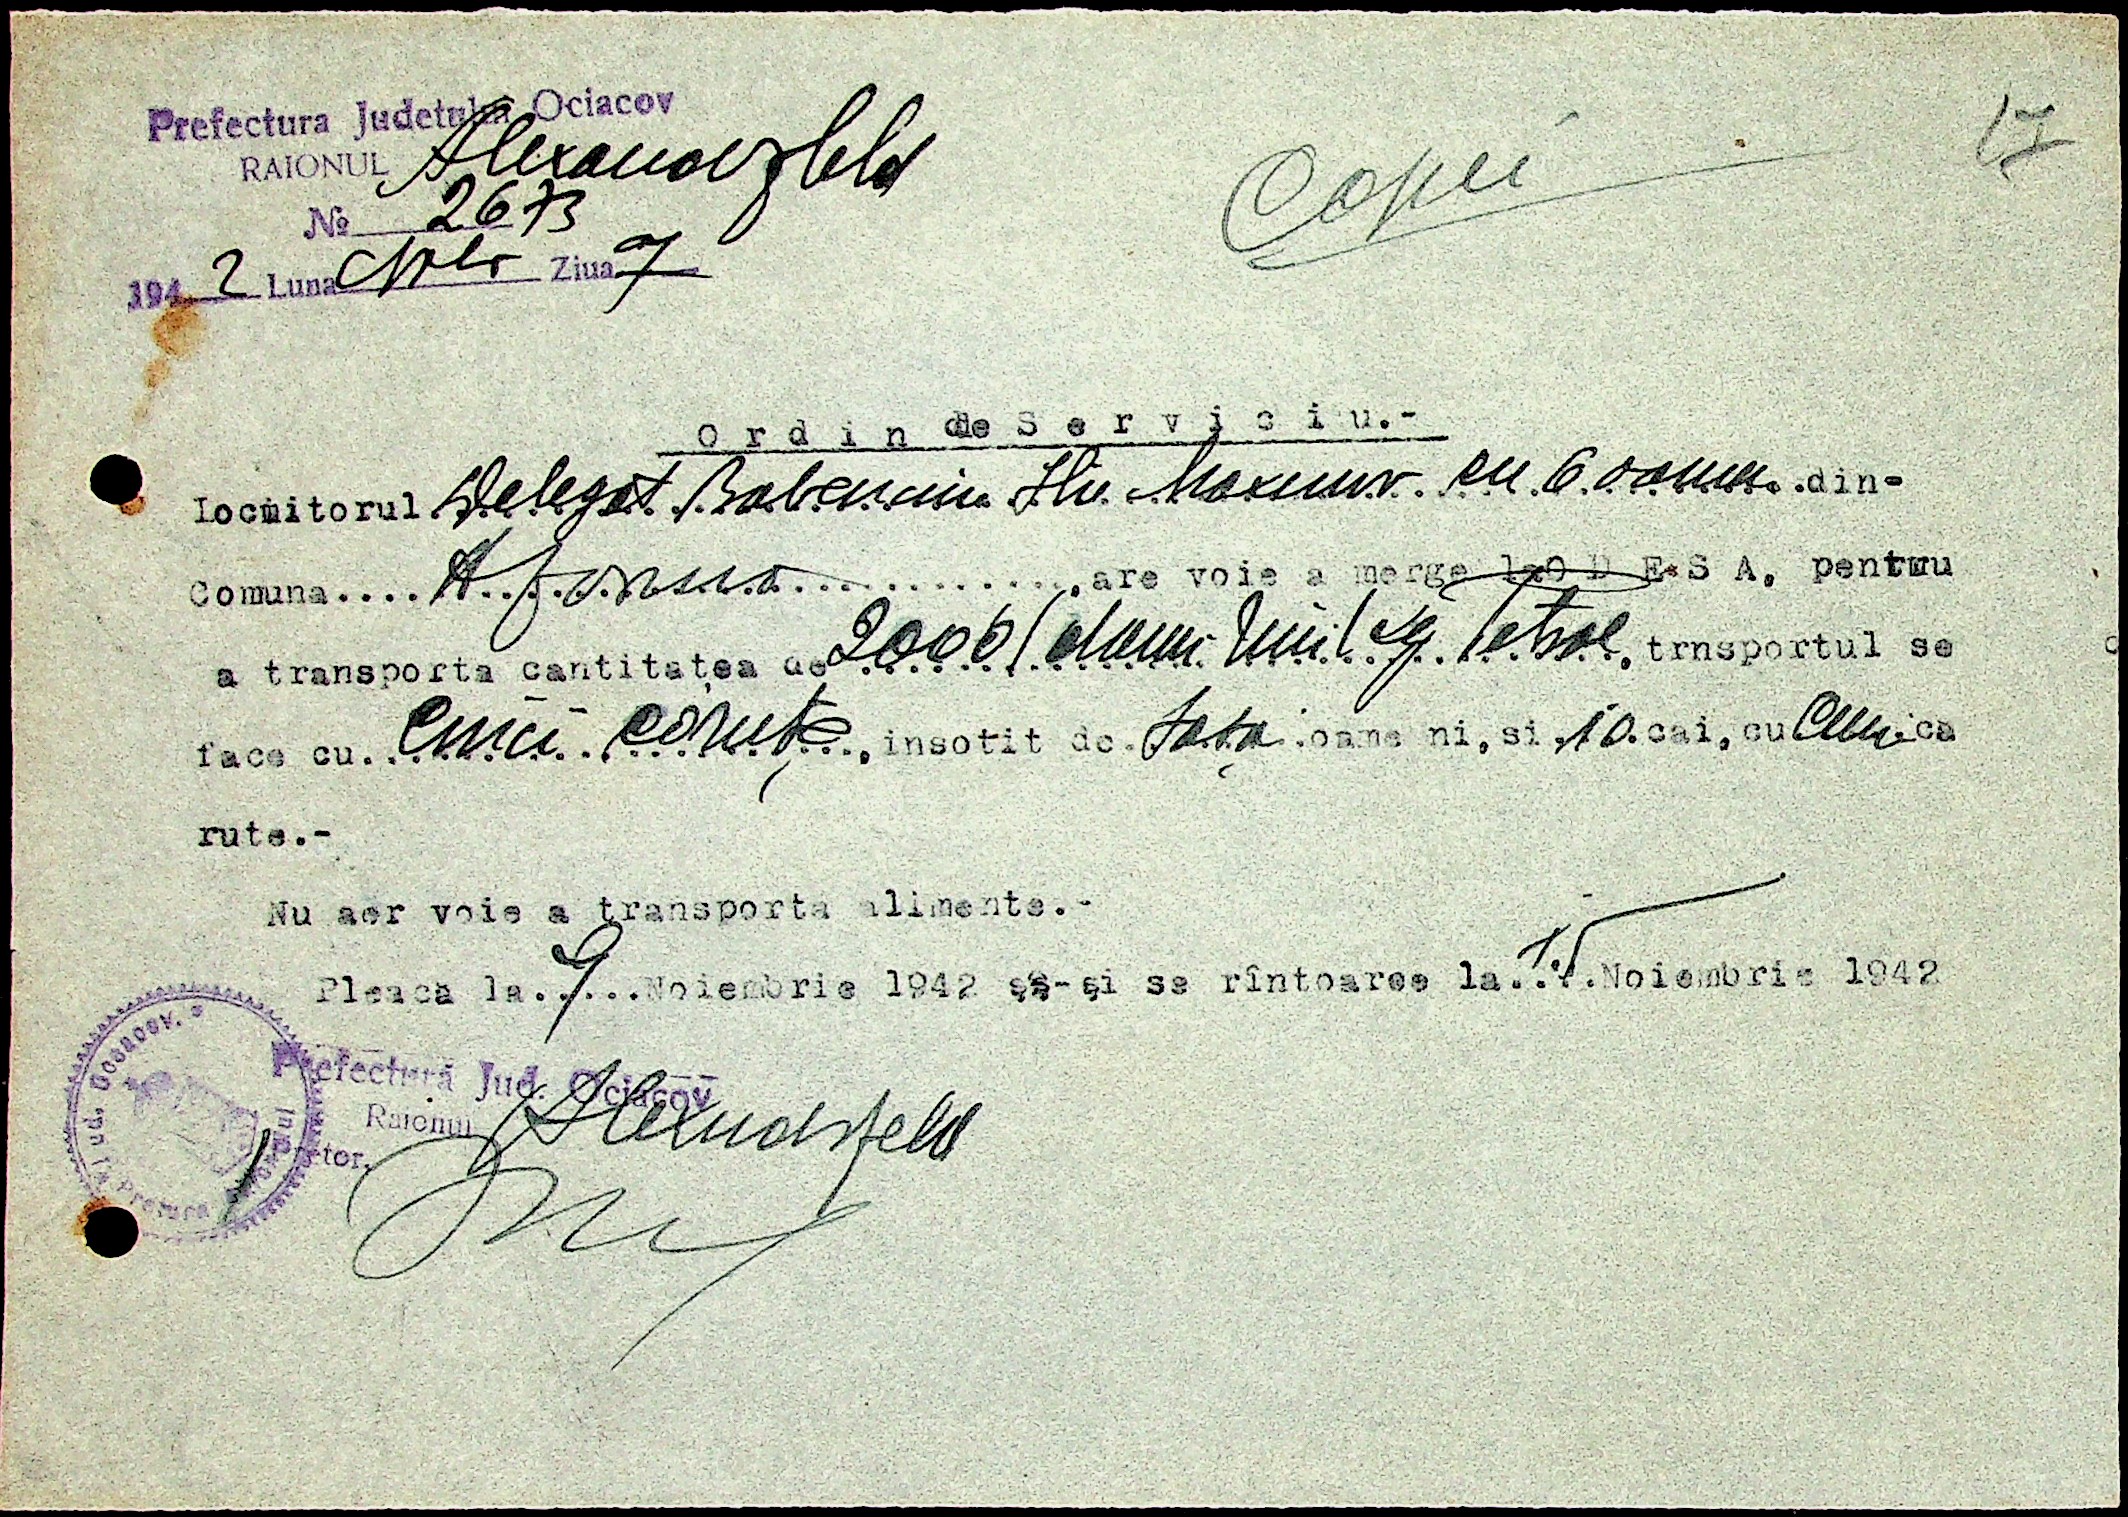 Prefectura Judetului Ociacov
RAIONUL Alexandrfeld
№ 2673
1942 Luna Npbr Ziua 7
Copii
17
O r d i n de S e r v i c i u.-
Locuitorul Delegat cu 6 oameni din-
Comuna.... are voie a merge la O D E S A, pentru
a transporta cantitatea de 2000 (doua mii) kg Petrol, trnsportul se
face cu. Cinci căruțe, insotit de. șase oame ni, si 10. cai, cu Cinci ca
rute.-
Nu aer voie a transporta alimente.-
Pleaca la..9...Noiembrie 1942 șș-și se rîntoaree la.15.Noiembrie 1942
Prefectura Jud. Ociacov
Raionul Alexandrfeld
Pretor,
Jud. Oceacov. Pretura